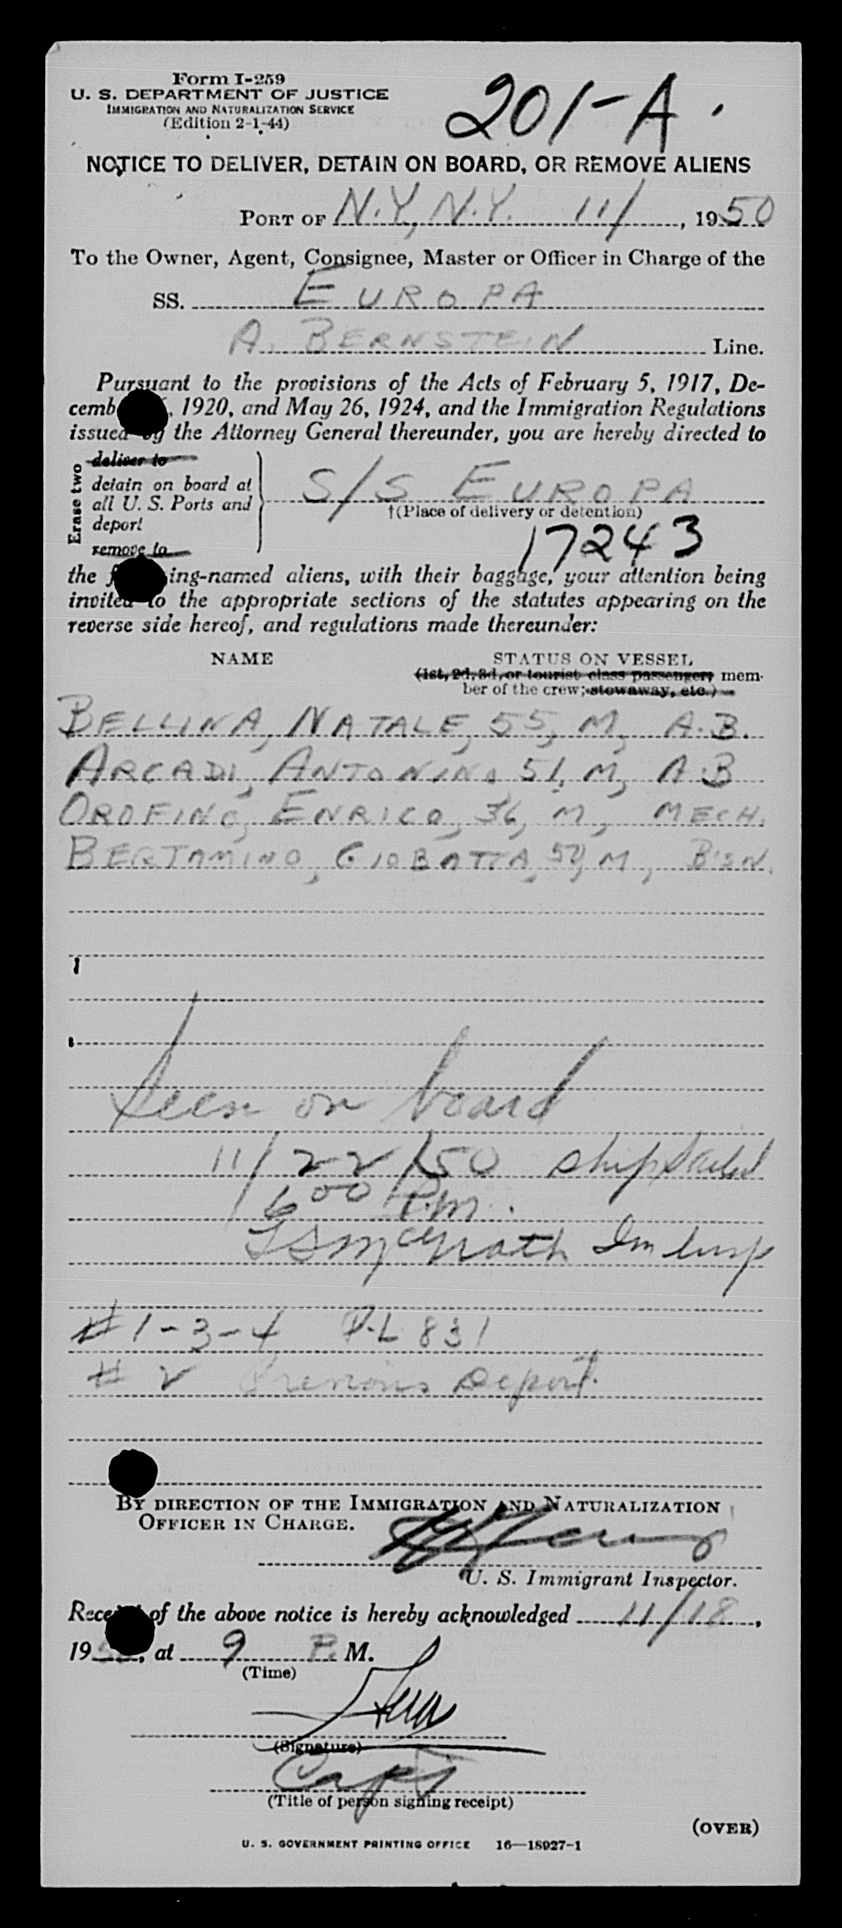 Form I-259
U. S. DEPARTMENT OF JUSTICE
IMMIGRATION AND NATURALIZATION SERVICE
(Edition 2-1-44)
201-A.
NOTICE TO DELIVER, DETAIN ON BOARD, OR REMOVE ALIENS
PORT OF N.Y, N.Y. 11/ , 1950
To the Owner, Agent, Consignee, Master or Officer in Charge of the
SS. EUROPA
A. BERNSTEIN Line.
Pursuant to the provisions of the Acts of February 5, 1917, De-
cemb , 1920, and May 26, 1924, and the Immigration Regulations
issued by the Attorney General thereunder, you are hereby directed to
Erase two
deliver to
detain on board at
all U. S. Ports and
deport
remove to
S/S EUROPA
†(Place of delivery or detention)
17243
the f ing-named aliens, with their baggage, your attention being
invited to the appropriate sections of the statutes appearing on the
reverse side hereof, and regulations made thereunder:
NAME STATUS ON VESSEL
(1st, 2d, 3d, or tourist class passenger; mem-
ber of the crew; stowaway, etc.)
BELLINA, NATALE, 55, M, A.B.
ARCADI, ANTONINO, 51, M, A.B
OROFINO, ENRICO, 36, M, MECH.
BERTAMINO, GIOBATTA, M, B'SN.
Seen on board
11/22/50 ship sailed
6 00 P.m.
McGrath Im Insp
#1-3-4 P.L 831
#2 Previous Deport.
BY DIRECTION OF THE IMMIGRATION AND NATURALIZATION
OFFICER IN CHARGE.
U. S. Immigrant Inspector.
Receipt of the above notice is hereby acknowledged 11/18,
1950, at 9 P. M.
(Time)
(Signature)
Capt
(Title of person signing receipt)
(OVER)
U. S. GOVERNMENT PRINTING OFFICE 16—18927-1